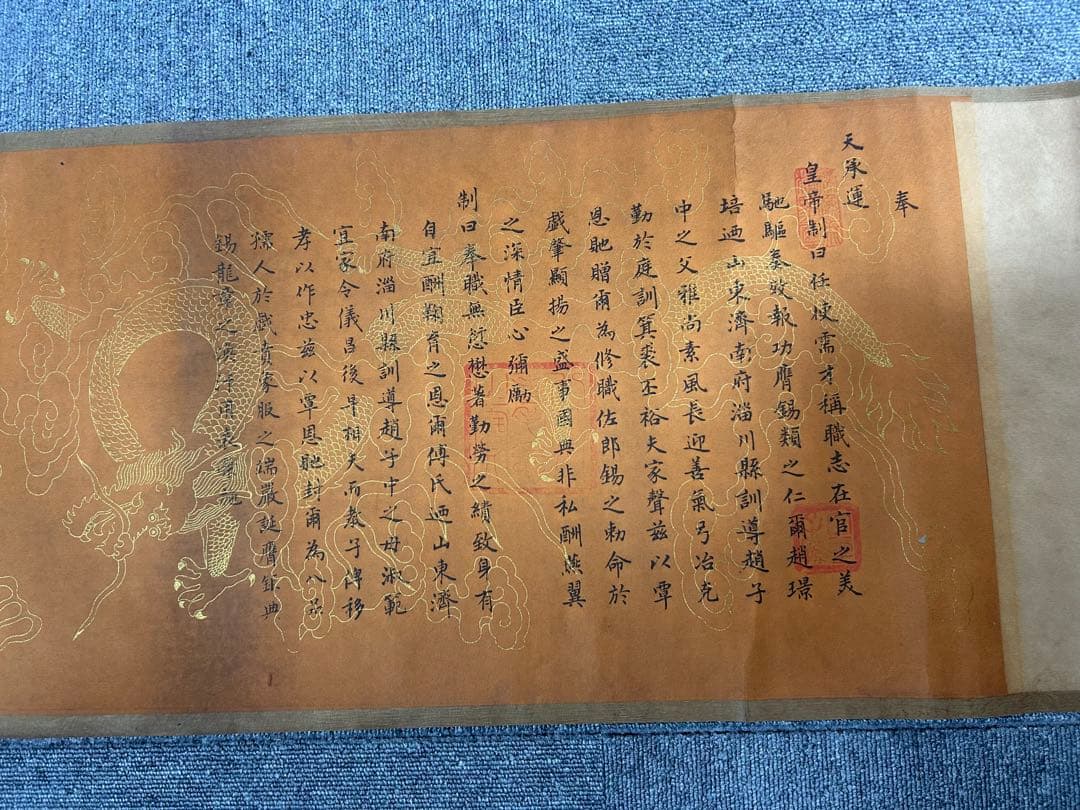 奉
天承運
皇帝制曰任使需才稱職志在官之美
馳驅奏效報功膺錫類之仁爾趙璟
培迺山東濟南府淄川縣訓導趙子
中之父雅尚素風長迎善氣弓冶克
勤於庭訓箕裘丕裕夫家聲茲以覃
恩貤贈爾為修職佐郎錫之勅命於
戲肇顯揚之盛事國典非私酬燕翼
之深情臣心彌勵
制曰奉職無愆懋著勤勞之績致身有
自宜酬鞠育之恩爾傅氏迺山東濟
南府淄川縣訓導趙子中之母淑範
宜家令儀昌後早相夫而教子俾移
孝以作忠茲以覃恩貤封爾為八品
孺人於戲賁象服之端嚴誕膺鉅典
錫龍章之